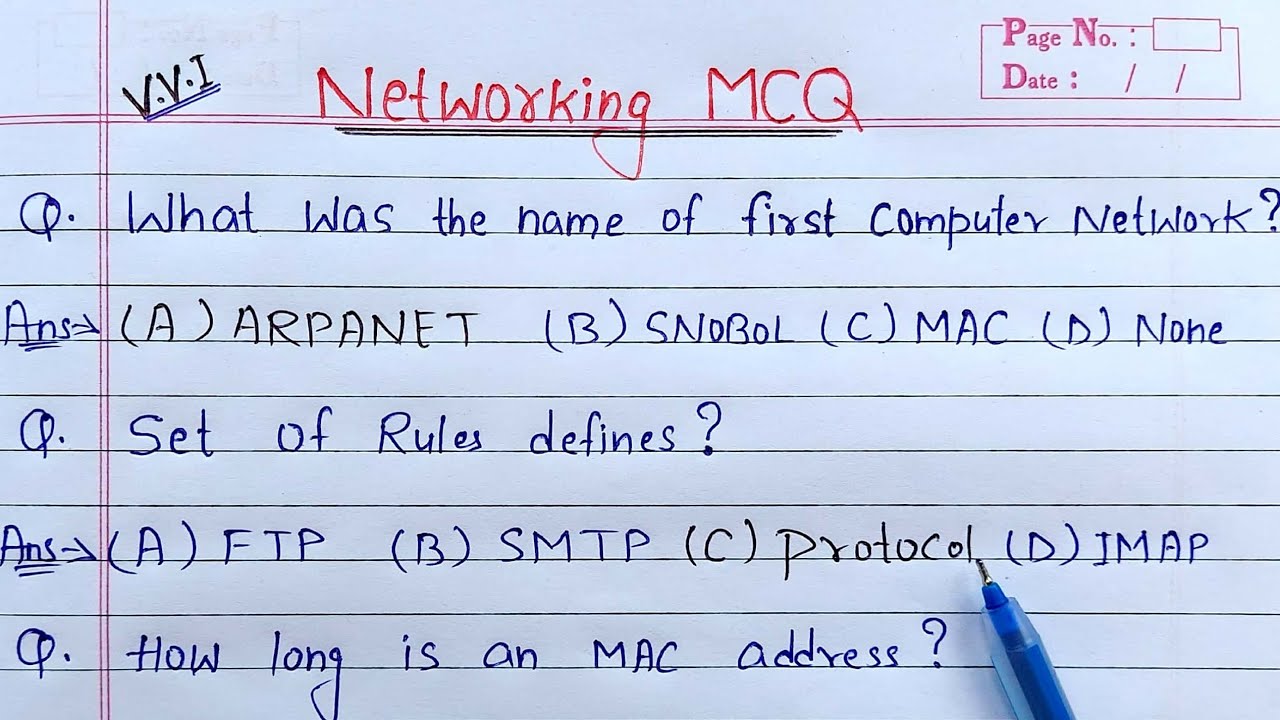 Page No. :
Date : / /
V.V.I Networking MCQ
Q. What was the name of first Computer Network?
Ans→ (A) ARPANET (B) SNOBOL (C) MAC (D) None
Q. Set of Rules defines?
Ans→ (A) FTP (B) SMTP (C) Protocol (D) IMAP
Q. How long is an MAC address?